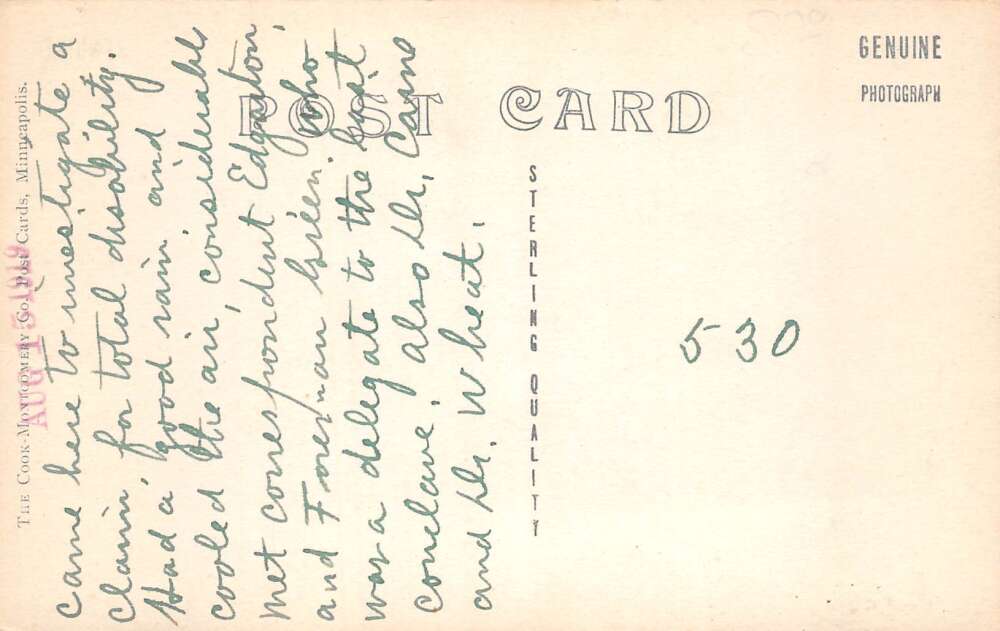 POST CARD
GENUINE
PHOTOGRAPH
STERLING QUALITY
THE COOK-MONTGOMERY CO., Post Cards, Minneapolis.
AUG 15 1919
Came here to investigate a
claim, for total disability.
Had a, good rain and
cooled the air, considerable
Met correspondent Edgarton,
and Foreman Green, who
was a delegate to the last
conclave, also Dr. Cane
and Dr. Wheat.
530